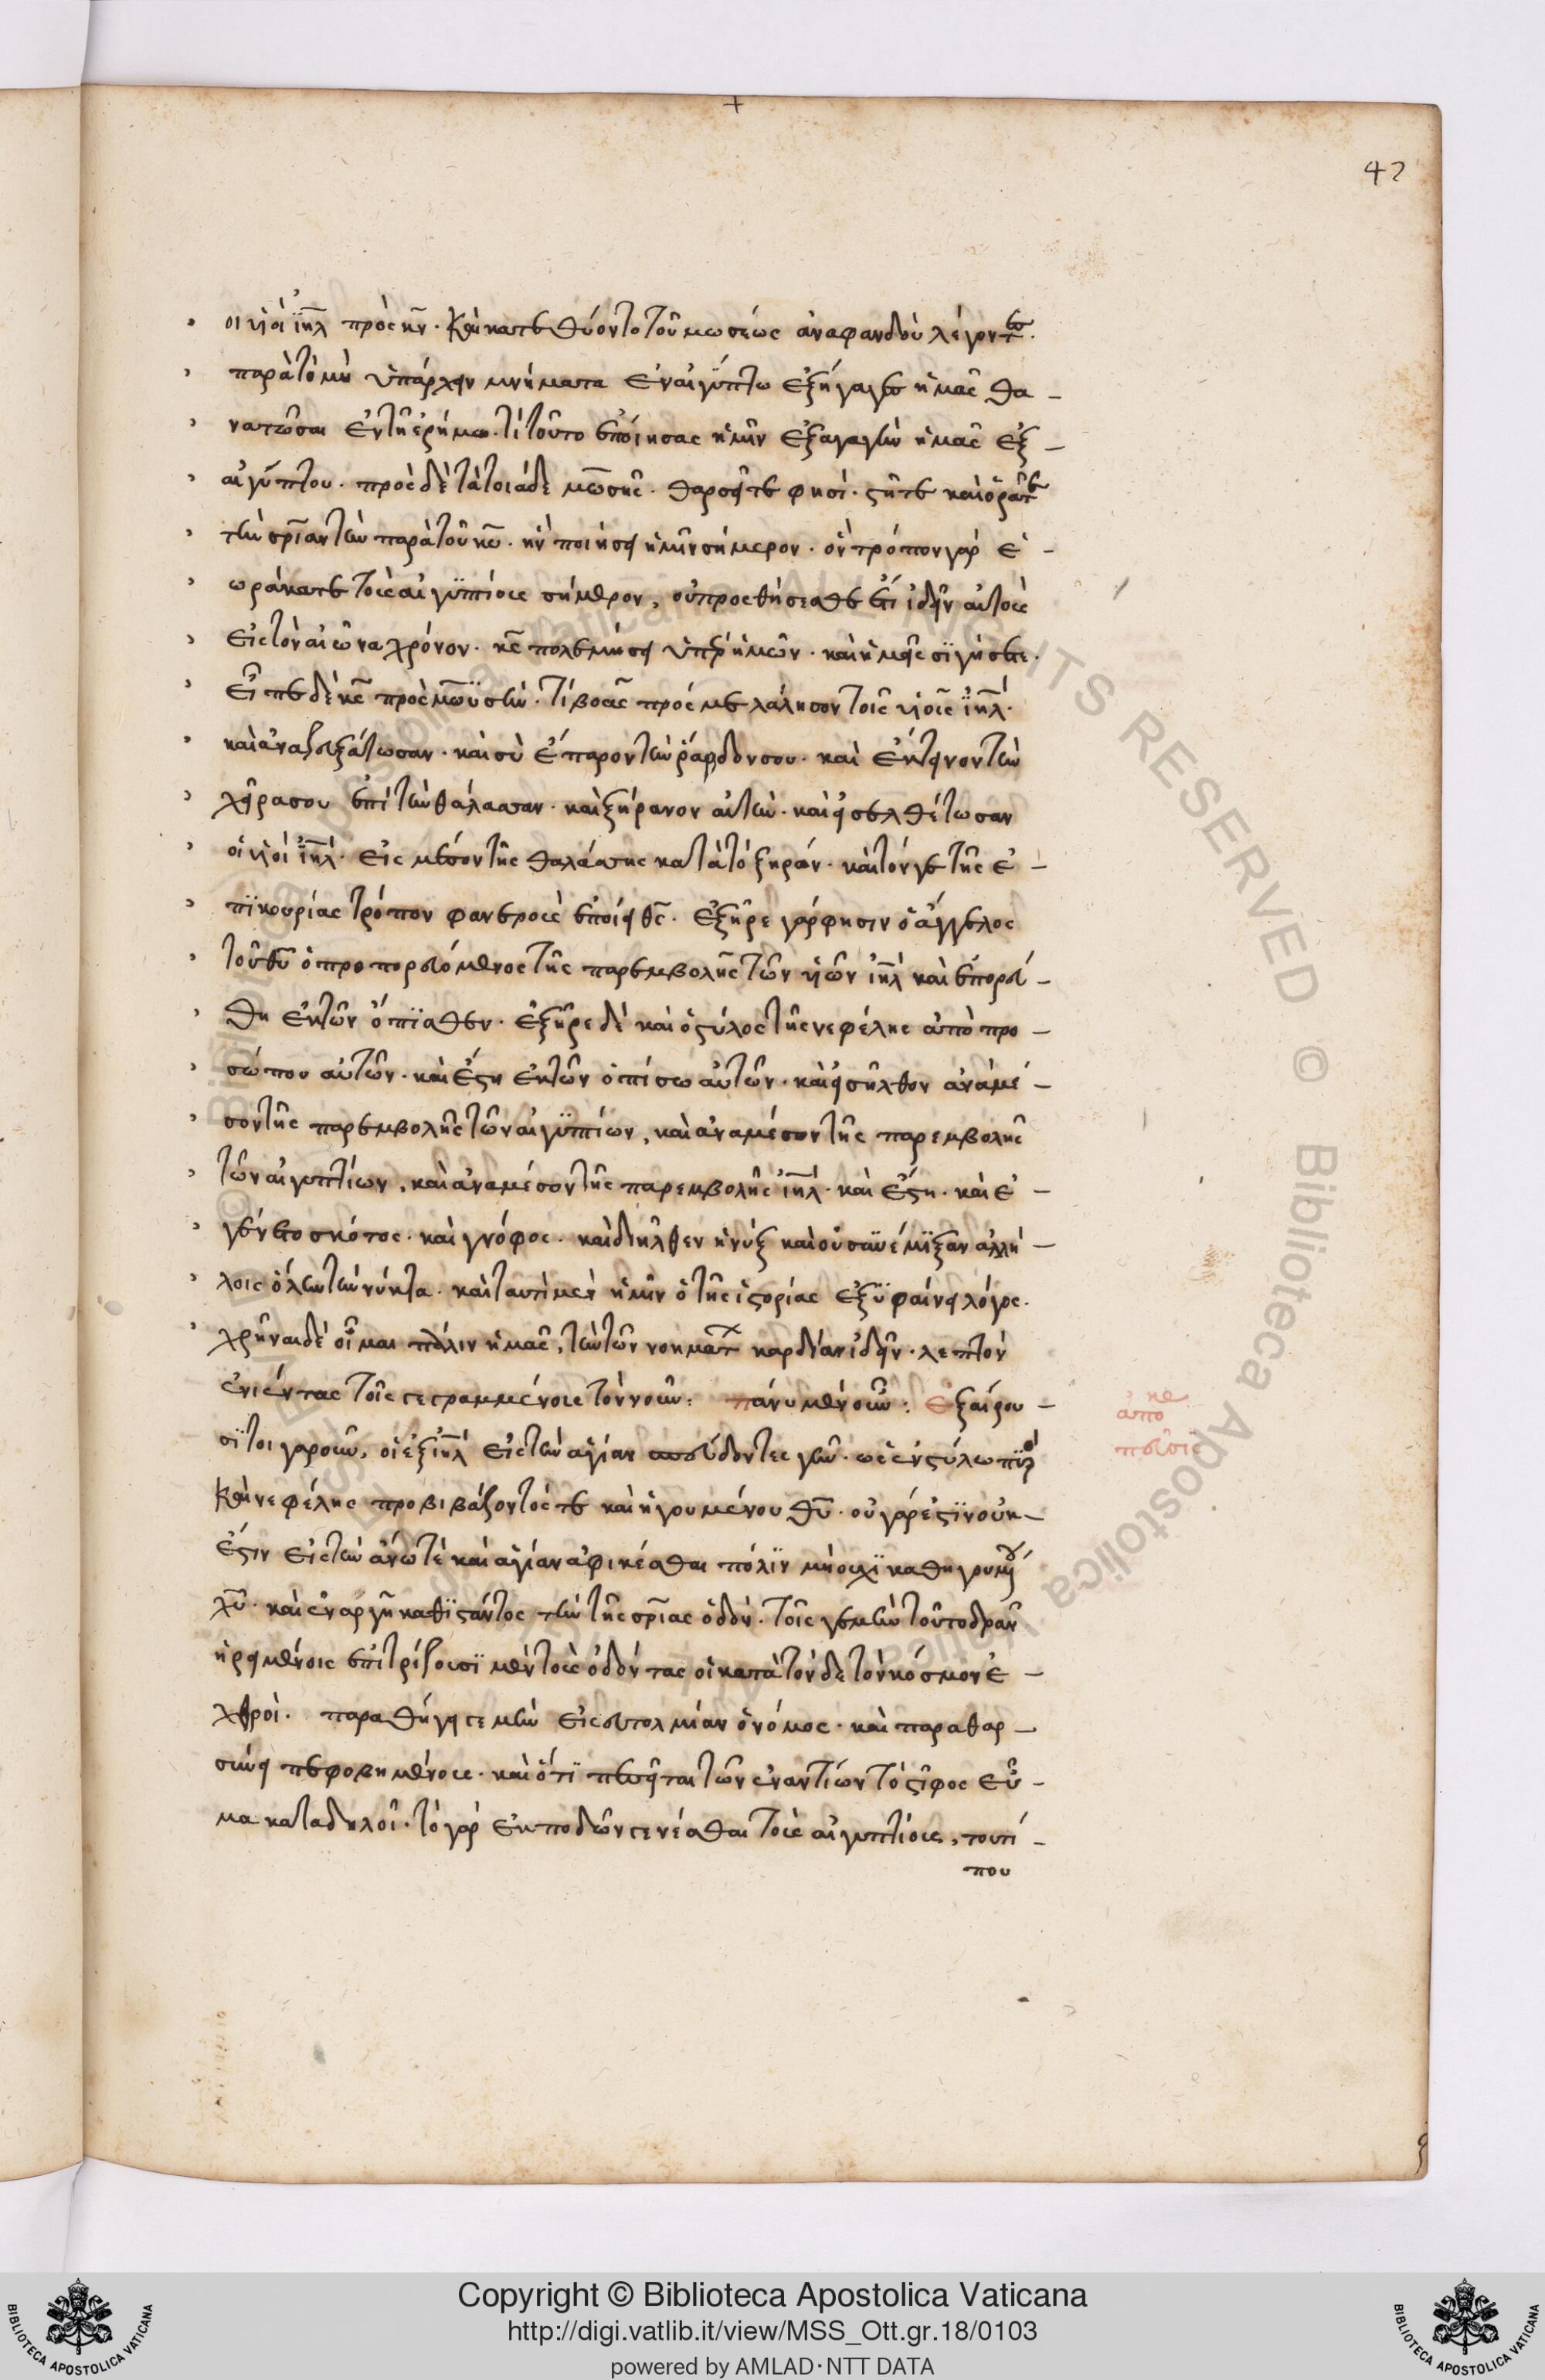 42
οι υἱοὶ ἰηλ πρὸς κν. καὶ κατεθύοντο τοῦ μωσέως ἀναφανδὸν λέγοντες.
παρὰ τὸ μὴ ὑπάρχειν μνήματα ἐν αἰγύπτω ἐξήγαγες ἡμᾶς θα-
νατῶσαι ἐν τῆ ἐρήμω. τί τοῦτο ἐποίησας ἡμῖν ἐξαγαγὼν ἡμᾶς ἐξ-
αἰγύπτου. πρὸς δὲ τὰ τοιάδε μωσῆς. θαρσεῖτε φησί. στῆτε καὶ ὁρᾶτε
τὴν σρίαν τὴν παρὰ τοῦ κυ. ἣν ποιήσει ἡμῖν σήμερον. ὃν τρόπον γὰρ ἑ-
ωράκατε τοὺς αἰγυπτίους σήμερον, οὐ προσθήσεσθε ἔτι ἰδεῖν αὐτοὺς
εἰς τὸν αἰῶνα χρόνον. κς πολεμήσει ὑπὲρ ἡμῶν. καὶ ὑμεῖς σϊγήσετε.
εἶπε δὲ κς πρὸς μωϋσῆν. τί βοᾶς πρός με λάλησον τοῖς υἱοῖς ἰηλ.
καὶ ἀναζευξάτωσαν. καὶ σὺ ἔπαρον τὴν ῥάβδον σου. καὶ ἔκτεινον τὴν
χεῖρα σου ἐπὶ τὴν θάλασσαν. καὶ ξήρανον αὐτήν. καὶ εἰσελθέτωσαν
οἱ υἱοὶ ἰηλ. εἰς μέσον τῆς θαλάσσης κατὰ τὸ ξηρόν. καὶ τόν γε τῆς ἐ-
πϊκουρίας τρόπον φανεροὺς ἐποίει θς. ἐξῆρε γάρ φησιν ὁ ἄγγελος
τοῦ θυ ὁ προπορευόμενος τῆς παρεμβολῆς τῶν υἱῶν ἰηλ καὶ ἐπορεύ-
θη ἐκ τῶν ὄπϊσθεν. ἐξῆρε δὲ καὶ ὁ στύλος τῆς νεφέλης ἀπὸ προ-
σώπου αὐτῶν. καὶ ἔστη ἐκ τῶν ὀπίσω αὐτῶν. καὶ εἰσῆλθον ἀνὰ μέ-
σον τῆς παρεμβολῆς τῶν αἰγυπτίων, καὶ ἀναμέσον τῆς παρεμβολῆς
τῶν αἰγυπτίων, καὶ ἀναμέσον τῆς παρεμβολῆς ἰηλ. καὶ ἔστη. καὶ ἐ-
γένετο σκότος. καὶ γνόφος. καὶ διῆλθεν ἡ νὺξ καὶ οὐ συνέμϊξαν ἀλλή-
λοις ὅλην τὴν νύκτα. καὶ ταυτὶ μὲν ἡμῖν ὁ τῆς ἱστορίας ἐξϋφαίνει λόγος.
χρῆναι δὲ οἶμαι πάλιν ἡμᾶς, τὴν τῶν νοημάτων καρδίαν ἰδεῖν. λεπτὸν
ἐνιέντας τοῖς γεγραμμένοις τὸν νοῦν: πάνυ μὲν οὖν: ἐξαίρου-
σϊ τοι γαροῦν, οἱ ἐξ ἰηλ εἰς τὴν ἁγίαν σπεύδοντες γῆν. ὡς ἐν στύλω πϋρὸς
καὶ νεφέλης προβιβάζοντός τε καὶ ἡγουμένου θυ. οὐ γὰρ ἔστϊν οὐκ-
ἔστιν εἰς τὴν ἄνω τὲ καὶ ἁγίαν ἀφικέσθαι πόλϊν μὴ οὐχὶ καθηγουμένου
χυ. καὶ ἐναργῆ καθϊστάντος τὴν τῆς σρίας ὁδόν. τοῖς γε μὴν τοῦτο δρᾶν
ἡρημένοις ἐπιτρίζουσϊ μὲν τοὺς ὀδόντας οἱ κατὰ τόνδε τὸν κόσμον ἐ-
χθροί. παραθήγει γε μὴν εἰς εὐτολμίαν ὁ νόμος. καὶ παραθαρ-
σύνει πεφοβημένους. καὶ ὅτϊ πεσεῖται τῶν ἐναντίων τὸ στῖφος εὖ-
μα καταδηλοῖ. τὸ γὰρ ἐκποδὼν γενέσθαι τοὺς αἰγυπτίους, τουτί-
που
κε
ἀπο
Copyright © Biblioteca Apostolica Vaticana
http://digi.vatlib.it/view/MSS_Ott.gr.18/0103
powered by AMLAD·NTT DATA